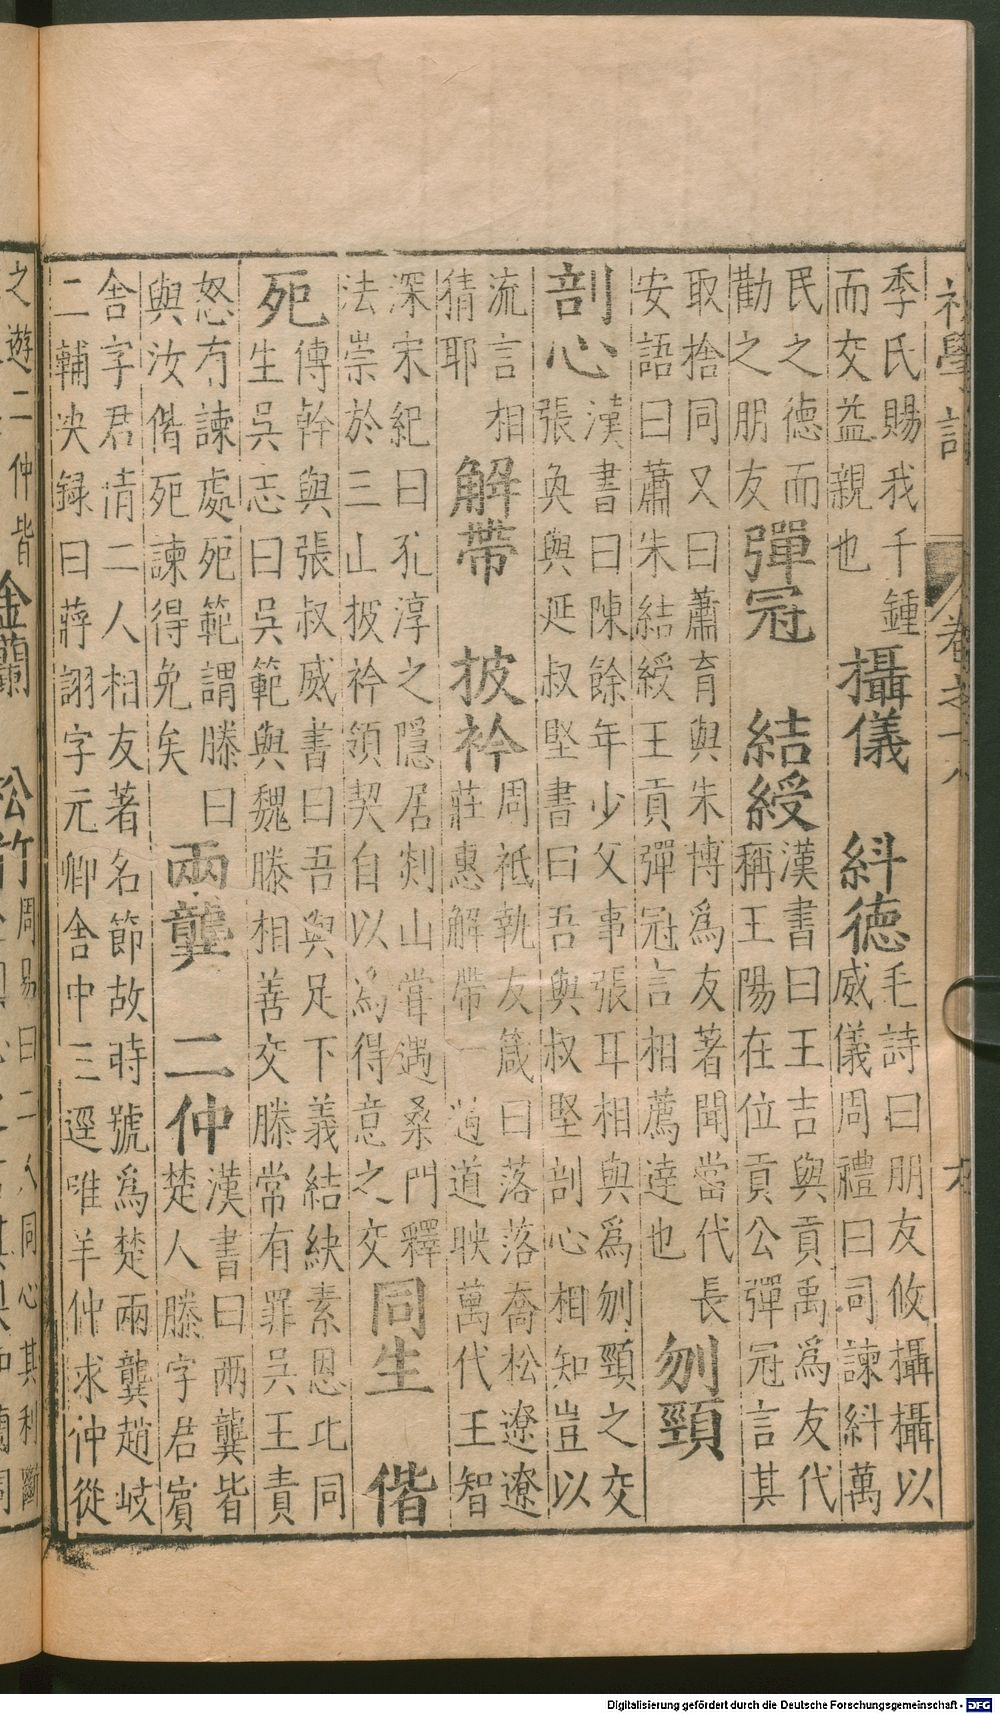 初學記 卷之十八
季氏賜我千鍾
而交益親也
攝儀 紏德
毛詩曰朋友攸攝攝以
威儀周禮曰司諫紏萬
民之德而
勸之朋友
彈冠 結綬
漢書曰王吉與貢禹爲友代
稱王陽在位貢公彈冠言其
取捨同又曰蕭育與朱博爲友著聞當代長
安語曰蕭朱結綬王貢彈冠言相薦達也
刎頸
剖心
漢書曰陳餘年少父事張耳相與爲刎頸之交
張奐與延叔堅書曰吾與叔堅剖心相知豈以
流言相
猜耶
解帶 披衿
周祗執友箴曰落落喬松遼遼
莊惠解帶一遇道映萬代王智
深宋紀曰孔淳之隱居剡山嘗遇桑門釋
法崇於三山披衿領契自以爲得意之交
同生 偕
死
傳幹與張叔威書曰吾與足下義結紩素恩比同
生吳志曰吳範與魏滕相善交滕常有罪吳王責
怒有諫處死範謂滕曰
與汝偕死諫得免矣
兩龔 二仲
漢書曰兩龔皆
楚人勝字君賓
舎字君凊二人相友著名節故時號爲楚兩龔趙岐
二輔决録曰蔣詡字元卿舎中三逕唯羊仲求仲從
之遊二仲皆
金蘭 松竹
周易曰二人同心其利斷
Digitalisierung gefördert durch die Deutsche Forschungsgemeinschaft - DFG